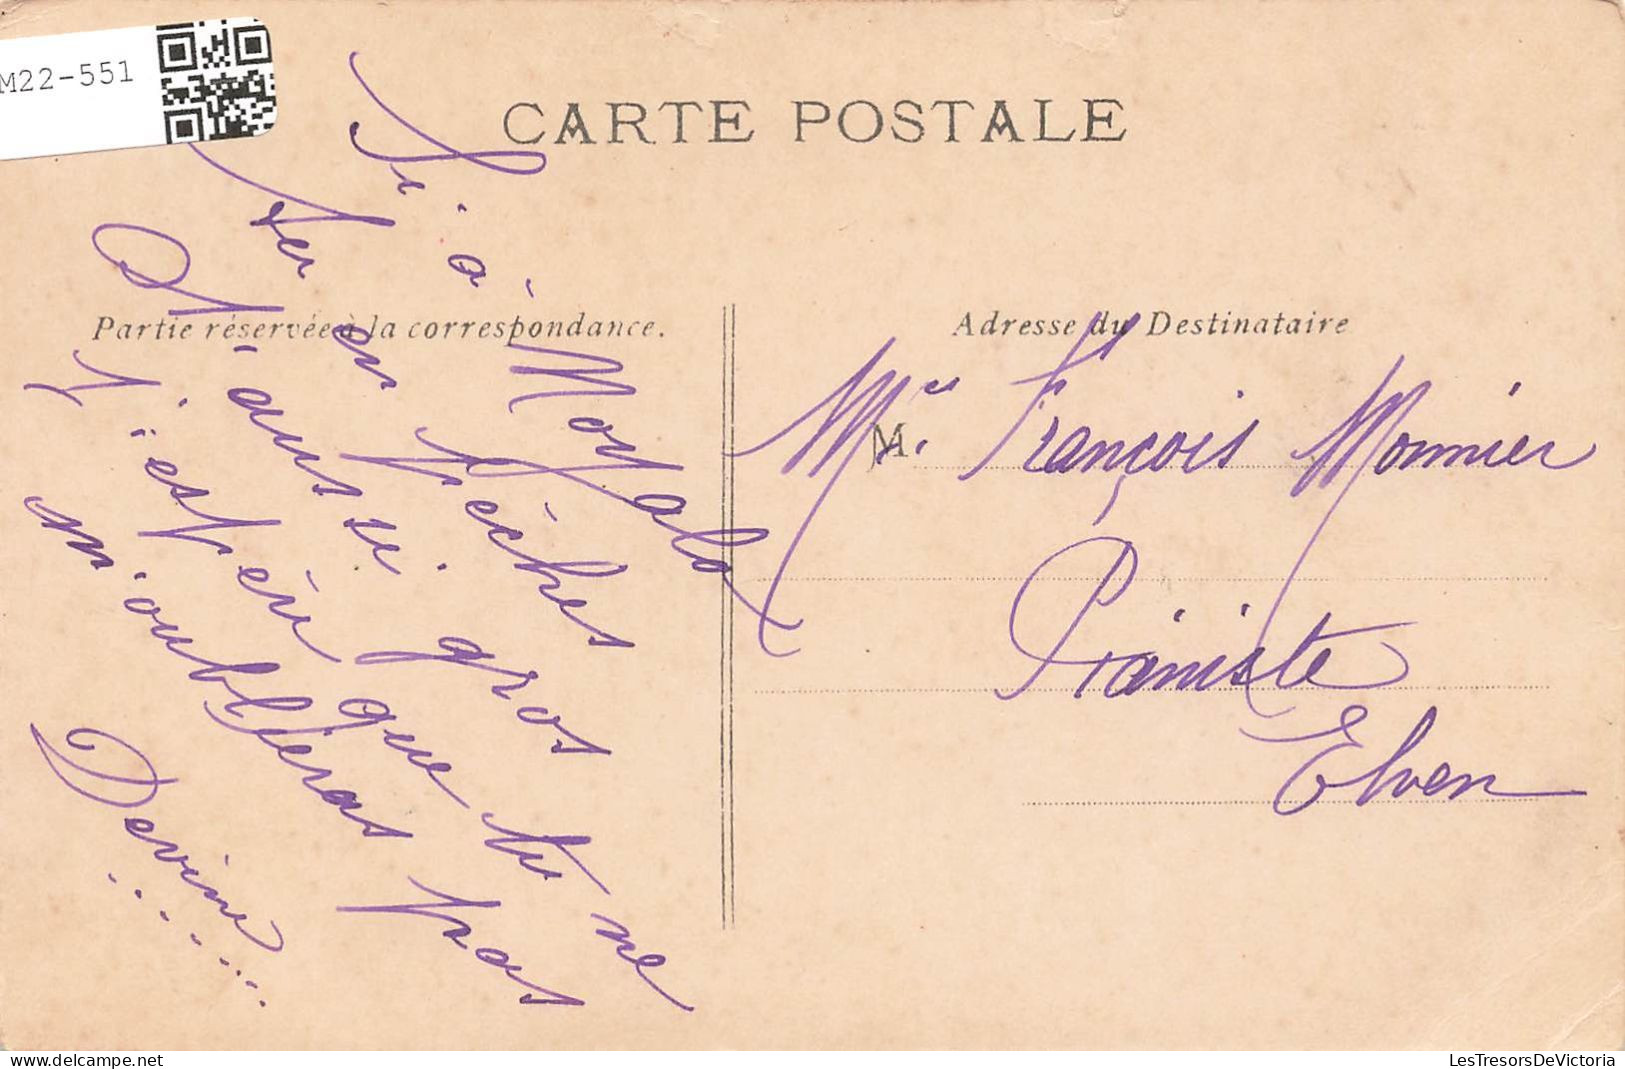 M22-551
CARTE POSTALE
Partie réservée à la correspondance.
Adresse du Destinataire
Si à Noyalo
tu en pêches
d'aussi gros
J'espère que tu ne
m'oublieras pas
Devine......
M.
Mr François Monnier
Pianiste
Elven
LesTresorsDeVictoria
www.delcampe.net